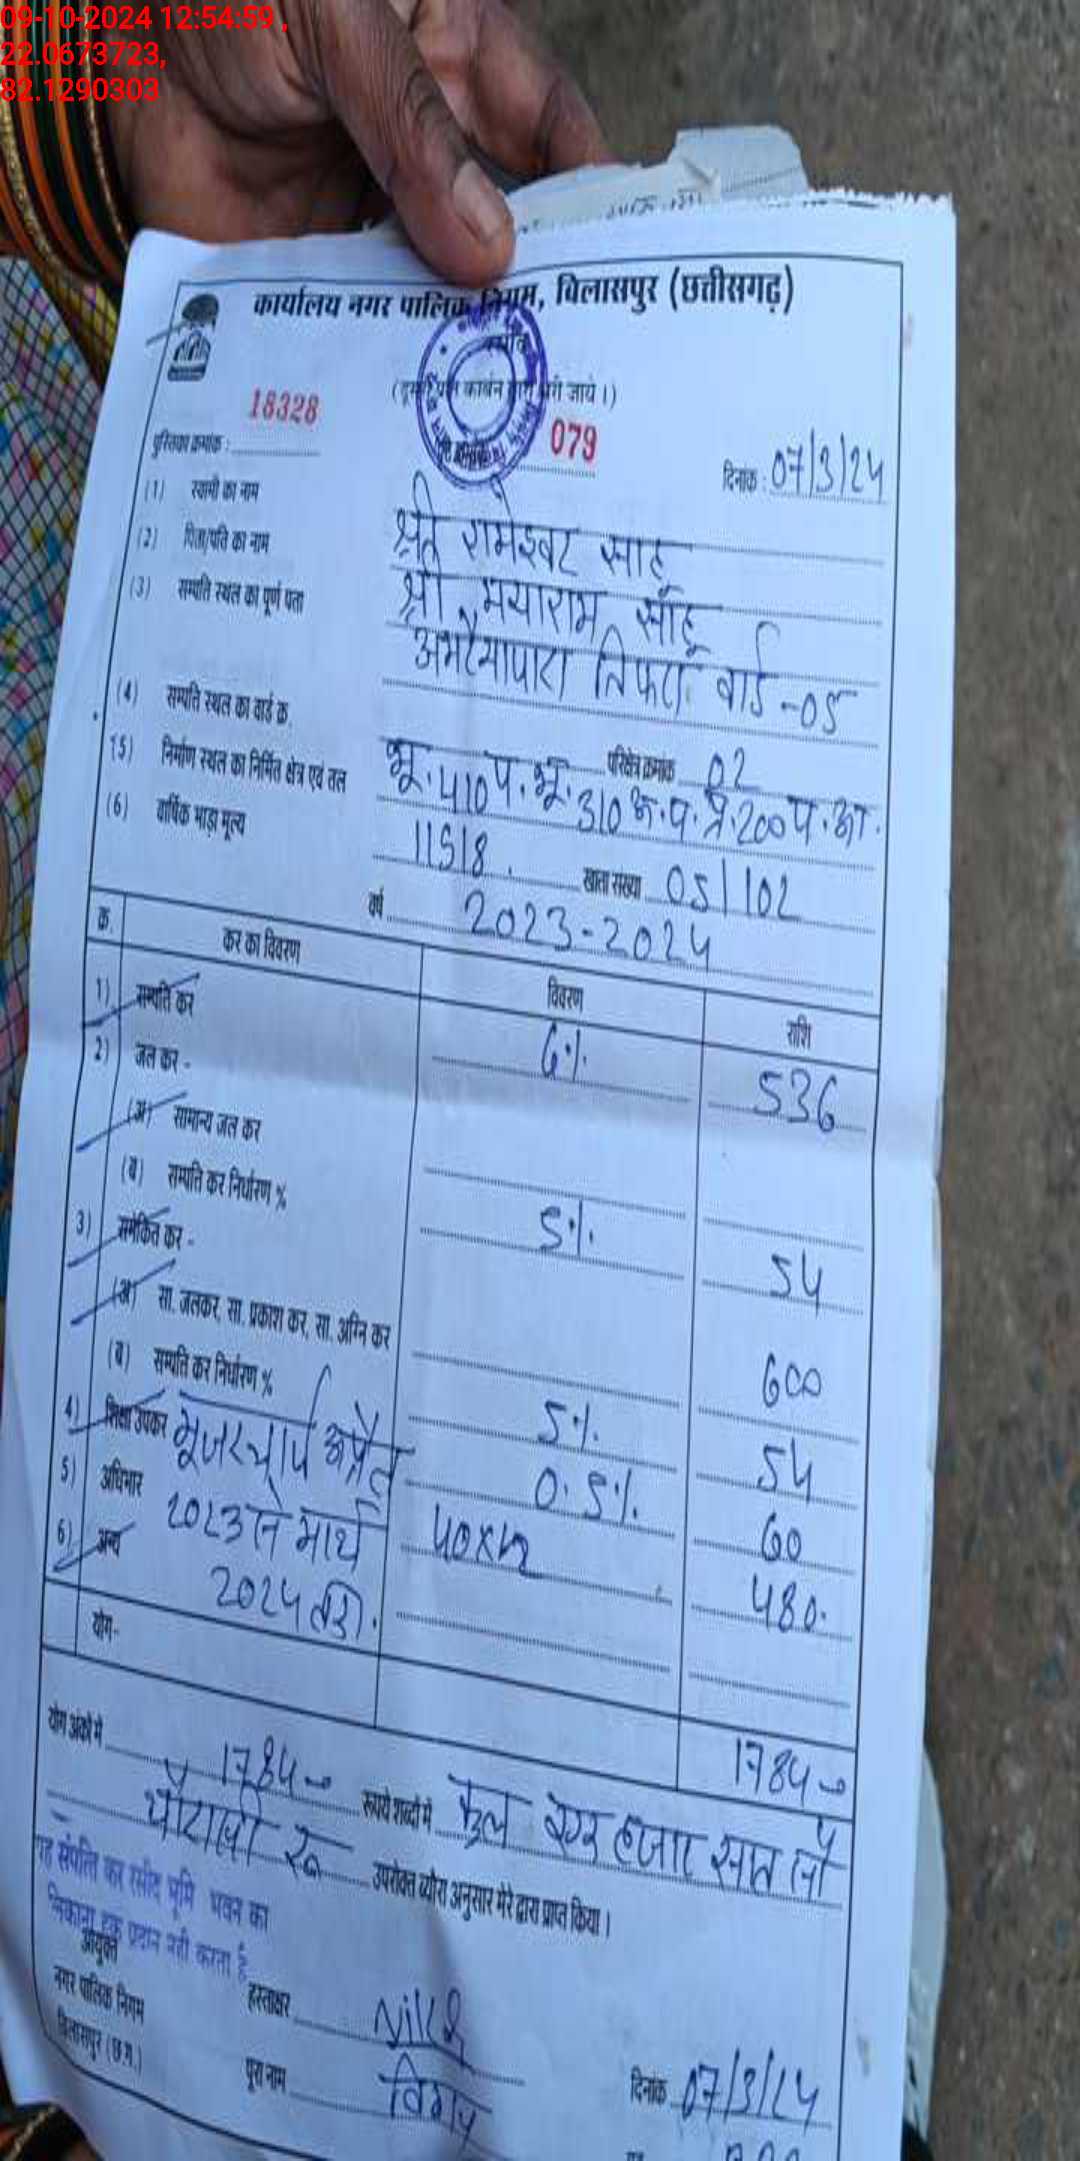 09-10-2024 12:54:59 ,
22.0673723,
82.1290303
कार्यालय नगर पालिक निगम, बिलासपुर (छत्तीसगढ़)
18328
079
पुस्तिका क्रमांक :
दिनांक : 07/3/24
(1) स्वामी का नाम
श्री रामेश्वर साहू
(2) पिता/पति का नाम
श्री मयाराम साहू
(3) सम्पत्ति स्थल का पूर्ण पता
तिफरा वार्ड -05
(4) सम्पत्ति स्थल का वार्ड क्र.
परिक्षेत्र क्रमांक 02
(5) निर्माण स्थल का निर्मित क्षेत्र एवं तल
भू. 410 प. भू. 310
(6) वार्षिक भाड़ा मूल्य
11518
खाता संख्या 05/102
वर्ष 2023-2024
क्र. कर का विवरण विवरण राशि
1) सम्पत्ति कर 6% 536
2) जल कर -
(अ) सामान्य जल कर
(ब) सम्पत्ति कर निर्धारण % 5% 54
3) समेकित कर -
(अ) सा. जलकर, सा. प्रकाश कर, सा. अग्नि कर 600
(ब) सम्पत्ति कर निर्धारण % 5% 54
4) शिक्षा उपकर 0.5% 60
5) अधिभार 40x12 480.
6) अन्य
यूजर चार्ज अप्रैल
2023 से मार्च
2024 तक.
योग- 1784
योग अंकों में 1784
रूपये शब्दों में कुल एक हजार सात सौ
चौरासी रू
उपरोक्त ब्यौरा अनुसार मेरे द्वारा प्राप्त किया ।
यह संपत्ति कर रसीद भूमि भवन का
हक प्रदान नहीं करता है
आयुक्त
नगर पालिक निगम
बिलासपुर (छ.ग.)
हस्ताक्षर
पूरा नाम
दिनांक 07/3/24